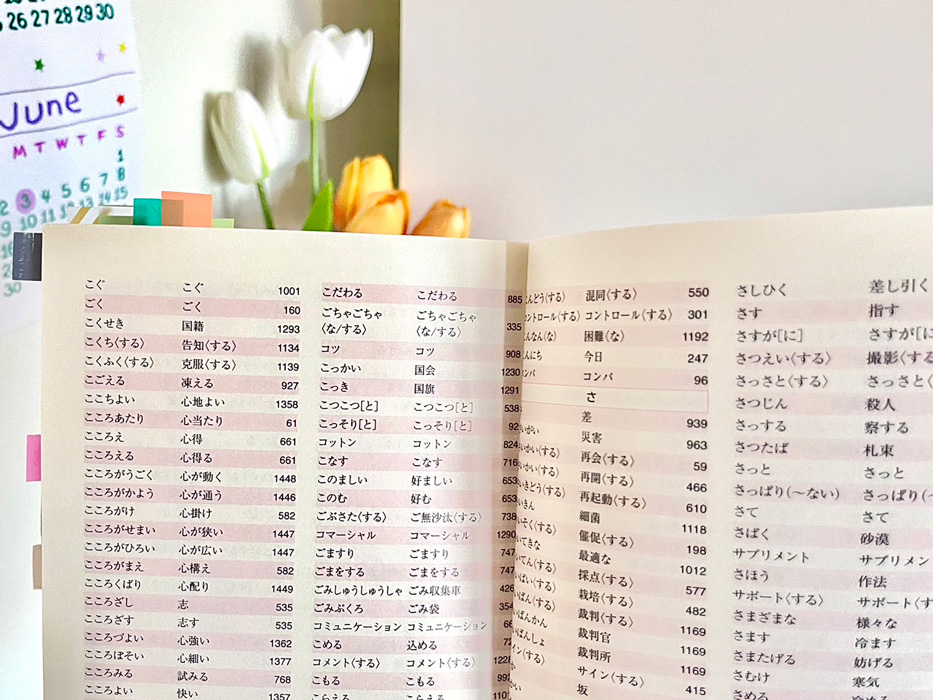 26 27 28 29 30
June
M T W T F S
1
2 3 4 5 6 7 8
9 10 11 12 13 14 15
30
こぐ こぐ 1001
ごく ごく 160
こくせき 国籍 1293
こくち〈する〉 告知〈する〉 1134
こくふく〈する〉 克服〈する〉 1139
こごえる 凍える 927
ここちよい 心地よい 1358
こころあたり 心当たり 61
こころえ 心得 661
こころえる 心得る 661
こころがうごく 心が動く 1448
こころがかよう 心が通う 1446
こころがけ 心掛け 582
こころがせまい 心が狭い 1447
こころがひろい 心が広い 1447
こころがまえ 心構え 582
こころくばり 心配り 1449
こころざし 志 535
こころざす 志す 535
こころづよい 心強い 1362
こころぼそい 心細い 1377
こころみる 試みる 768
こころよい 快い 1357
こだわる こだわる 885
ごちゃごちゃ ごちゃごちゃ
〈な/する〉 〈な/する〉 335
コツ コツ 908
こっかい 国会 1230
こっき 国旗 1291
こつこつ[と] こつこつ[と] 538
こっそり[と] こっそり[と] 92
コットン コットン 824
こなす こなす 716
このましい 好ましい 653
このむ 好む 653
ごぶさた〈する〉 ご無沙汰〈する〉 738
コマーシャル コマーシャル 1290
ごますり ごますり 747
ごまをする ごまをする 747
ごみしゅうしゅうしゃ ごみ収集車 426
ごみぶくろ ごみ袋 354
コミュニケーション コミュニケーション
こめる 込める
コメント〈する〉 コメント〈する〉
こもる こもる
こらえる こらえる
混同〈する〉 550
コントロール〈する〉 301
困難〈な〉 1192
今日 247
コンパ 96
さ
差 939
災害 963
再会〈する〉 59
再開〈する〉 466
再起動〈する〉 610
細菌 1118
催促〈する〉 198
最適な 1012
採点〈する〉 577
栽培〈する〉 482
裁判〈する〉 1169
裁判官 1169
裁判所 1169
サイン〈する〉 415
坂
さしひく 差し引く
さす 指す
さすが[に] さすが[に
さつえい〈する〉 撮影〈する
さっさと〈する〉 さっさと〈
さつじん 殺人
さっする 察する
さつたば 札束
さっと さっと
さっぱり(〜ない) さっぱり(
さて さて
さばく 砂漠
サプリメント サプリメン
さほう 作法
サポート〈する〉 サポート〈す
さまざまな 様々な
さます 冷ます
さまたげる 妨げる
さむけ 寒気
さめる 冷める